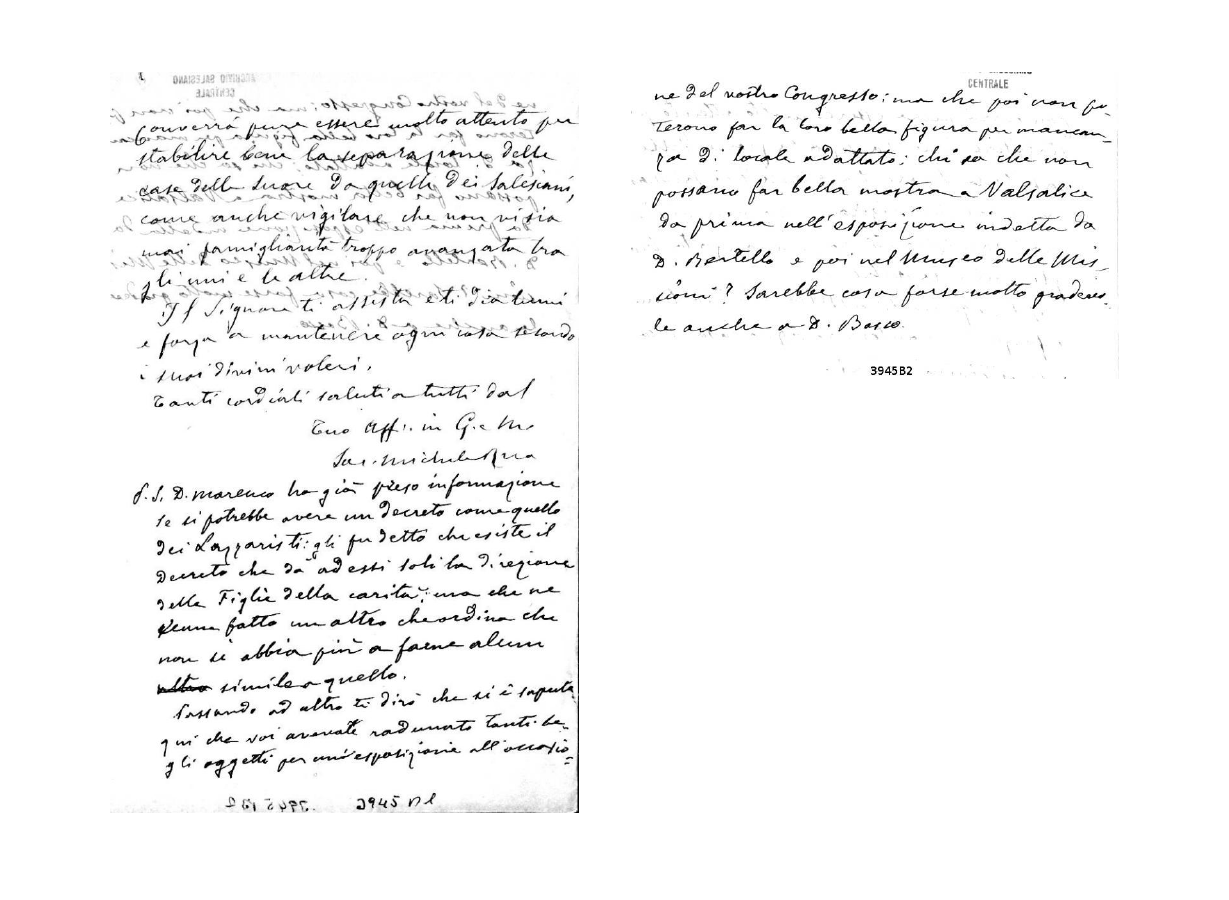 Converrà pure essere molto attento per
stabilire bene la separazione delle
case delle Suore da quelle dei Salesiani,
come anche vigilare che non vi sia
mai famigliarità troppo avanzata tra
gli uni e le altre.
Il Signore ti assista e ti dia lumi
e forza a mantenere ogni cosa secondo
i suoi divini voleri.
Tanti cordiali saluti a tutti dal
Tuo Aff. in G. e M.
Sac. Michele Rua
P.S. D. Marenco ha già preso informazione
se si potrebbe avere un decreto come quello
dei Lazzaristi: gli fu detto che esiste il
Decreto che dà ad essi soli la direzione
delle Figlie della carità; ma che ne
venne fatto un altro che ordina che
non si abbia più a farne alcun
altro simile a quello.
Passando ad altro ti dirò che si è saputo
qui che voi avevate radunato tanti be-
gli oggetti per un'esposizione all'occasio=
3945 B1
CENTRALE
ne del vostro Congresso: ma che poi non po-
terono far la loro bella figura per mancan-
za di locale adattato: chi sa che non
possano far bella mostra a Valsalice
da prima nell'esposizione indetta da
D. Bertello e poi nel Museo delle Mis-
sioni? Sarebbe cosa forse molto gradevo-
le anche a D. Bosco.
3945B2